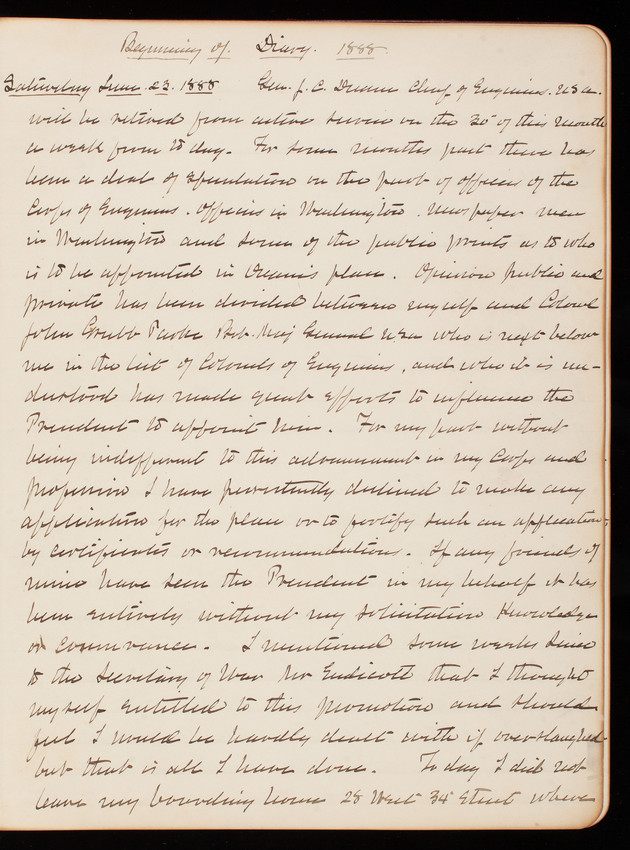 Beginning of Diary. 1888.
Saturday June 23. 1888 Gen. J. C. Duane Chief of Engineers. USA.
will be retired from active service on the 30th of this month
a week from to day. For some months past there has
been a deal of speculation on the part of officers of the
Corps of Engineers. Officers in Washington. Newspaper men
in Washington and some of the public prints as to who
is to be appointed in Duane's place. Opinion public and
private has been divided between myself and Colonel
John Grubb Parke Bvt. Maj General USA who is next below
me in the list of Colonels of Engineers, and who it is un-
derstood has made great efforts to influence the
President to appoint him. For my part without
being indifferent to this advancement in my Corps and
profession I have persistently declined to make any
application for the place or to fortify such an application
by certificates or recommendations. If any friends of
mine have seen the President in my behalf it has
been entirely without my solicitation knowledge
or connivance. I mentioned some weeks since
to the Secretary of War Mr Endicott that I thought
myself entitled to this promotion and should
feel I would be hardly dealt with if overslaughed
but that is all I have done. To day I did not
leave my boarding house 28 West 34 Street where